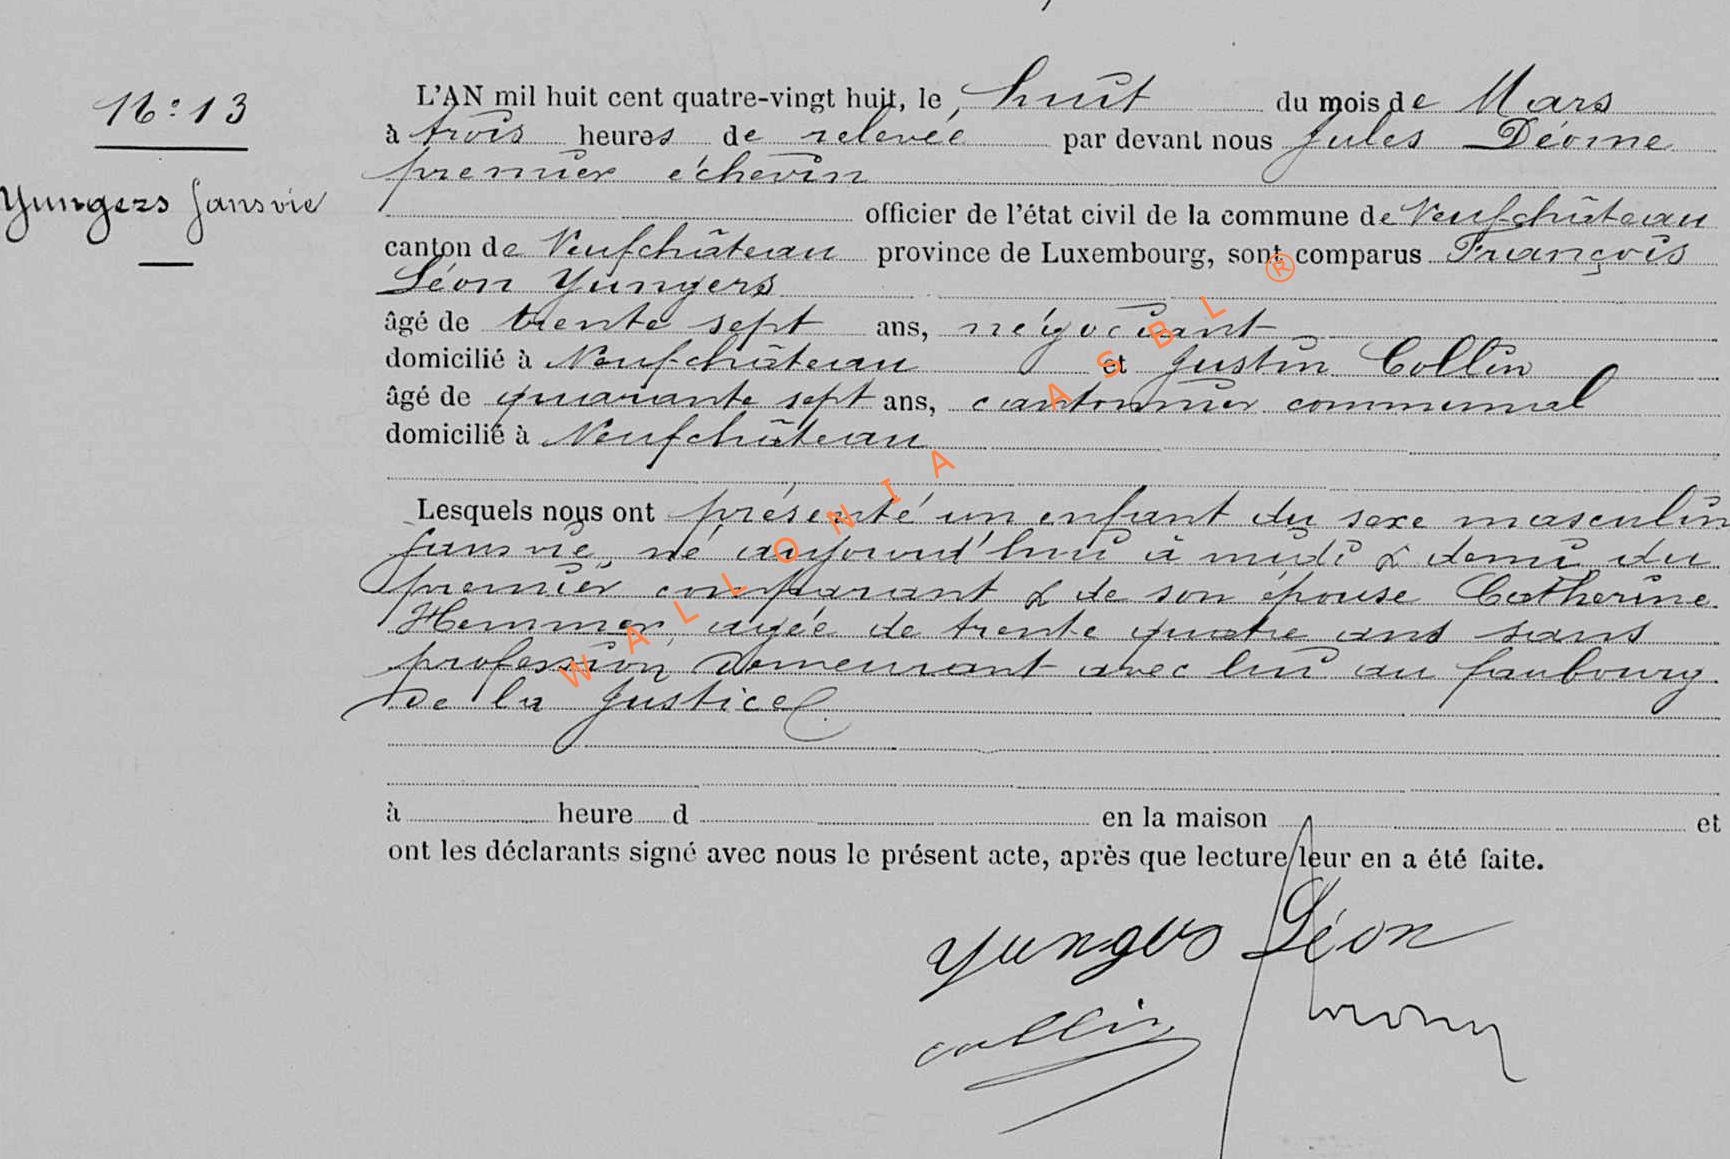 N°: 13
Yungers sans vie
L'AN mil huit cent quatre-vingt huit, le huit du mois de Mars
à trois heures de relevée par devant nous Jules Déome
premier échevin
officier de l'état civil de la commune de Neufchâteau
canton de Neufchâteau province de Luxembourg, sont comparus François
Léon Yungers
âgé de trente sept ans, négociant
domicilié à Neufchâteau et Justin Collin
âgé de quarante sept ans, cantonnier communal
domicilié à Neufchâteau
Lesquels nous ont présenté un enfant du sexe masculin
sans vie, né aujourd'hui à midi & demi du
premier comparant & de son épouse Catherine
Hemmer, agée de trente quatre ans sans
profession demeurant avec lui au faubourg
de la Justice
à heure d en la maison et
ont les déclarants signé avec nous le présent acte, après que lecture leur en a été faite.
Yungers Léon
Collin
WALLONIA ASBL ®